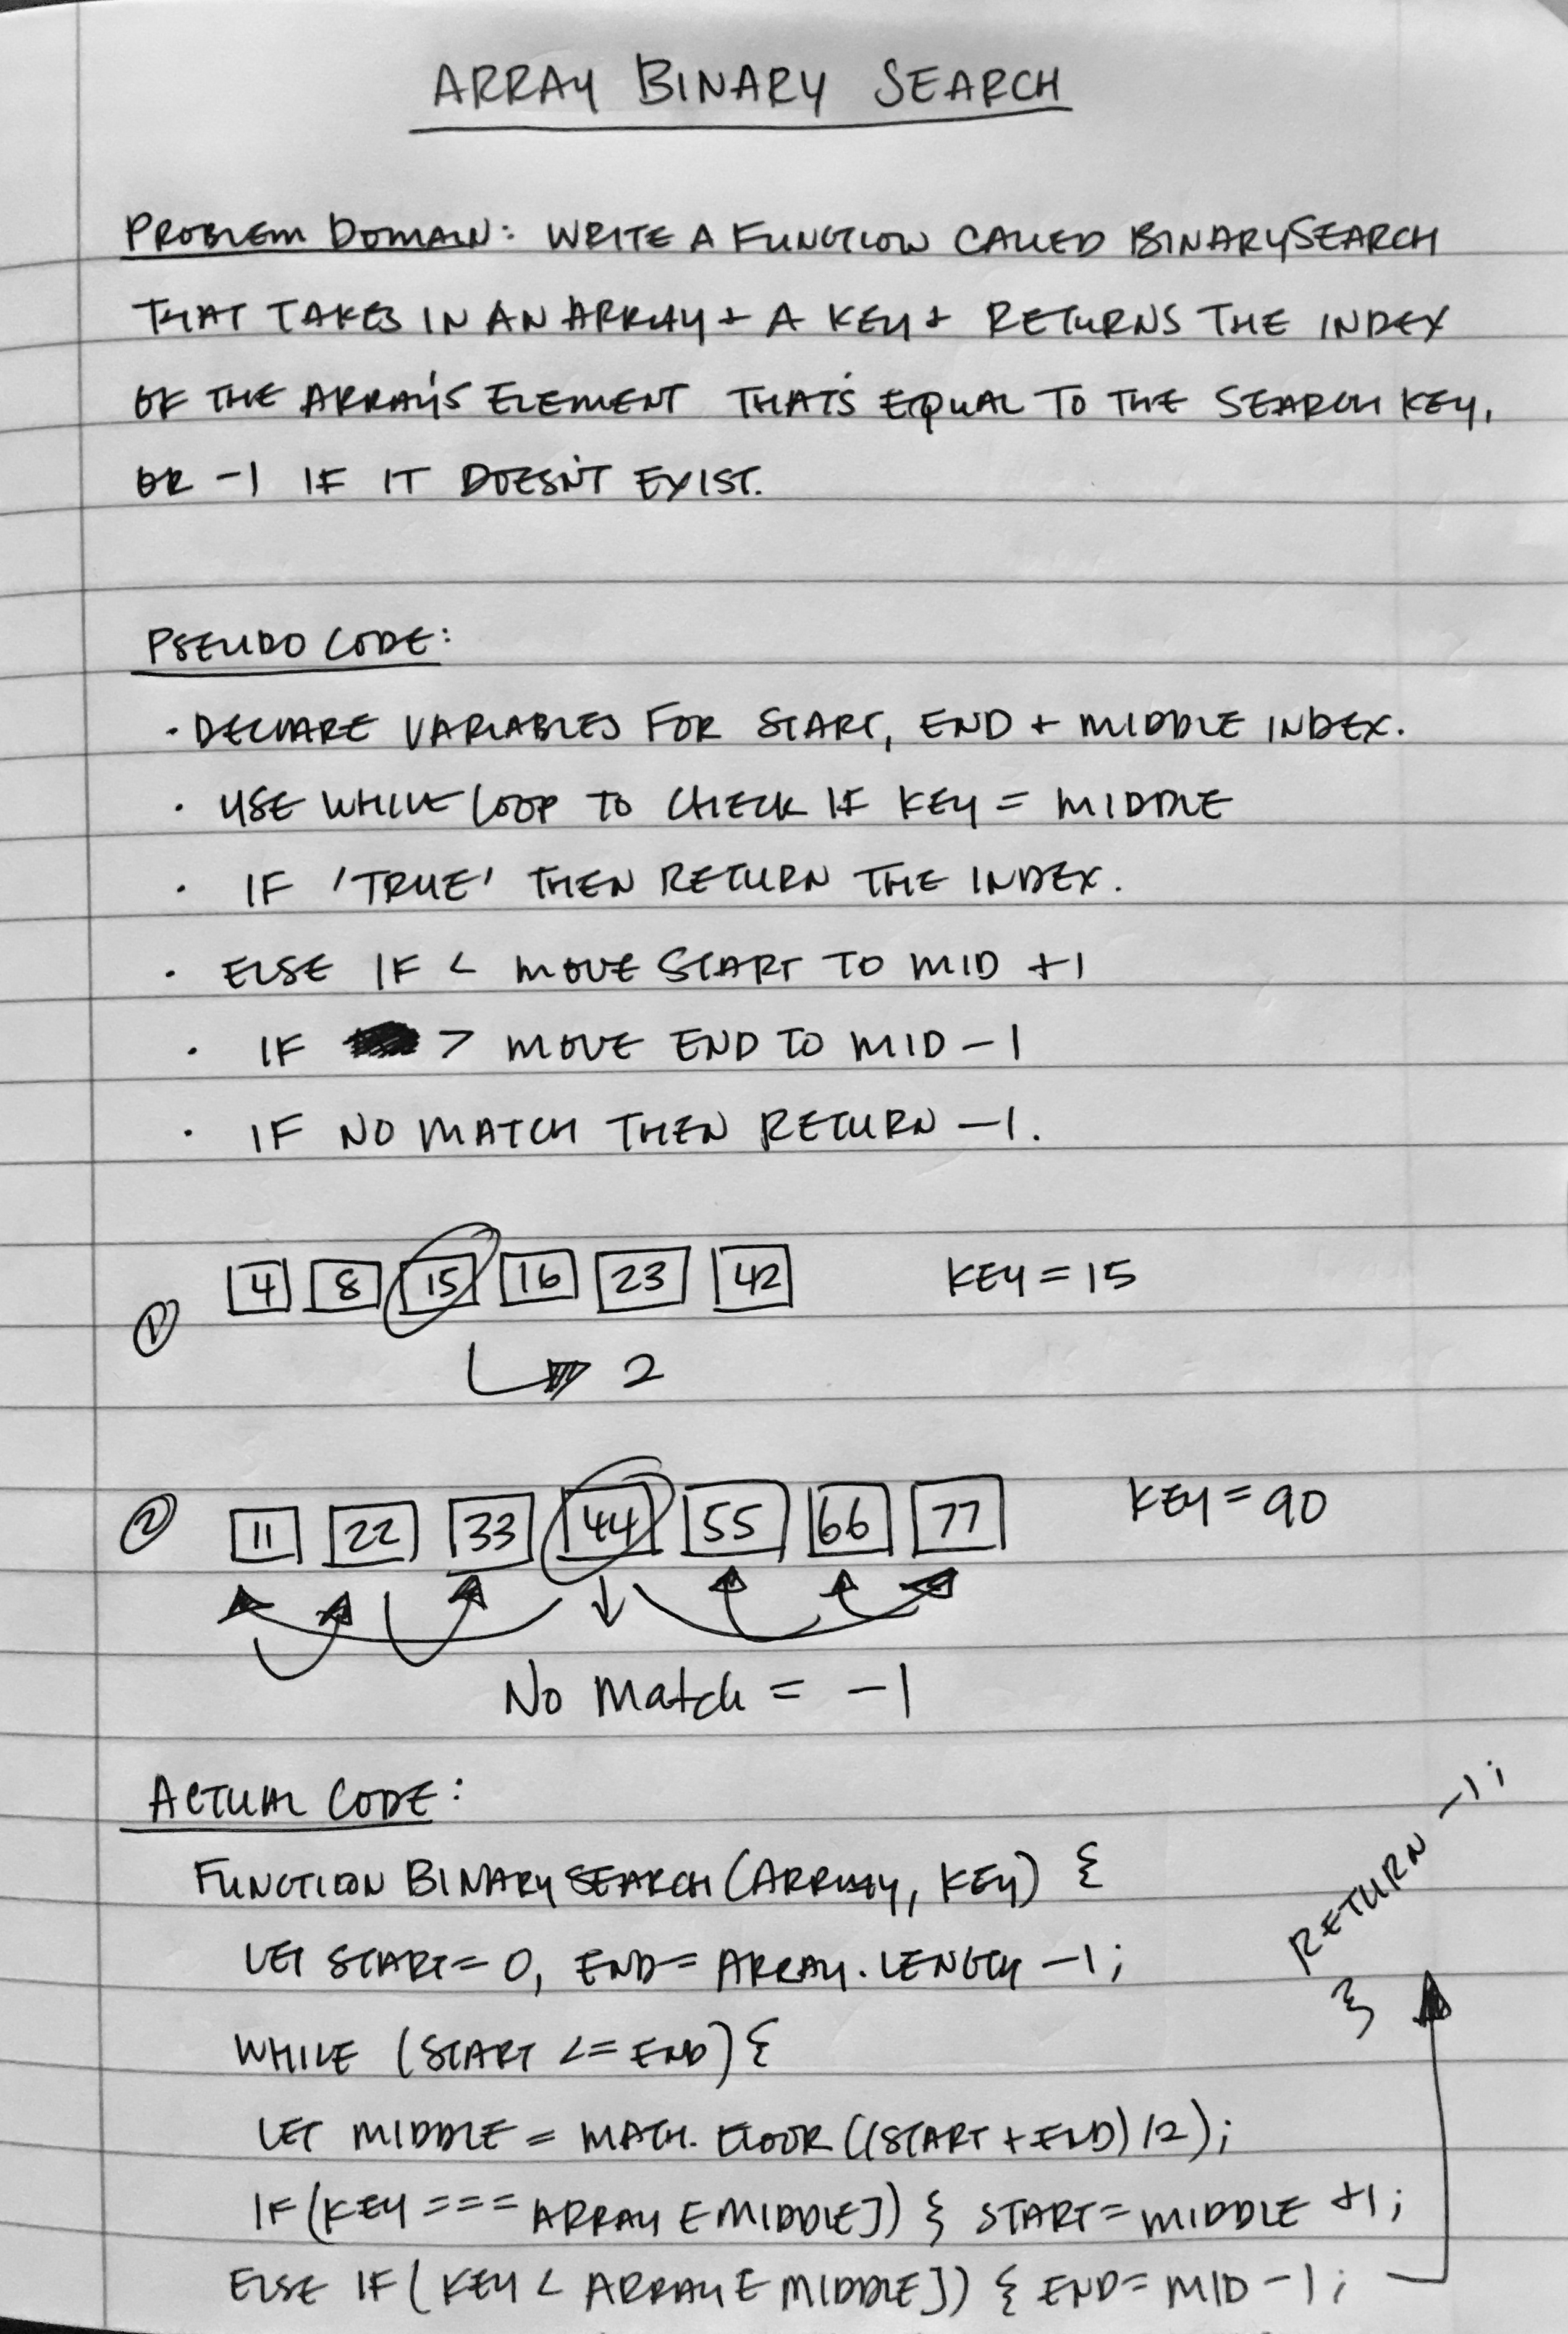 ARRAY BINARY SEARCH
PROBLEM DOMAIN: WRITE A FUNCTION CALLED BINARYSEARCH
THAT TAKES IN AN ARRAY + A KEY + RETURNS THE INDEX
OF THE ARRAY'S ELEMENT THAT'S EQUAL TO THE SEARCH KEY,
OR -1 IF IT DOESN'T EXIST.
PSEUDO CODE:
· DECLARE VARIABLES FOR START, END + MIDDLE INDEX.
· USE WHILE LOOP TO CHECK IF KEY = MIDDLE
· IF 'TRUE' THEN RETURN THE INDEX.
· ELSE IF < MOVE START TO MID +1
· IF > MOVE END TO MID -1
· IF NO MATCH THEN RETURN -1.
① 4 8 15 16 23 42 KEY = 15
2
② 11 22 33 44 55 66 77 KEY = 90
No Match = -1
ACTUAL CODE:
FUNCTION BINARYSEARCH (ARRAY, KEY) {
LET START = 0, END = ARRAY.LENGTH -1;
WHILE (START <= END) {
LET MIDDLE = MATH.FLOOR((START + END)/2);
IF (KEY === ARRAY[MIDDLE]) { START = MIDDLE +1;
ELSE IF (KEY < ARRAY[MIDDLE]) { END = MID -1;
RETURN -1;
}